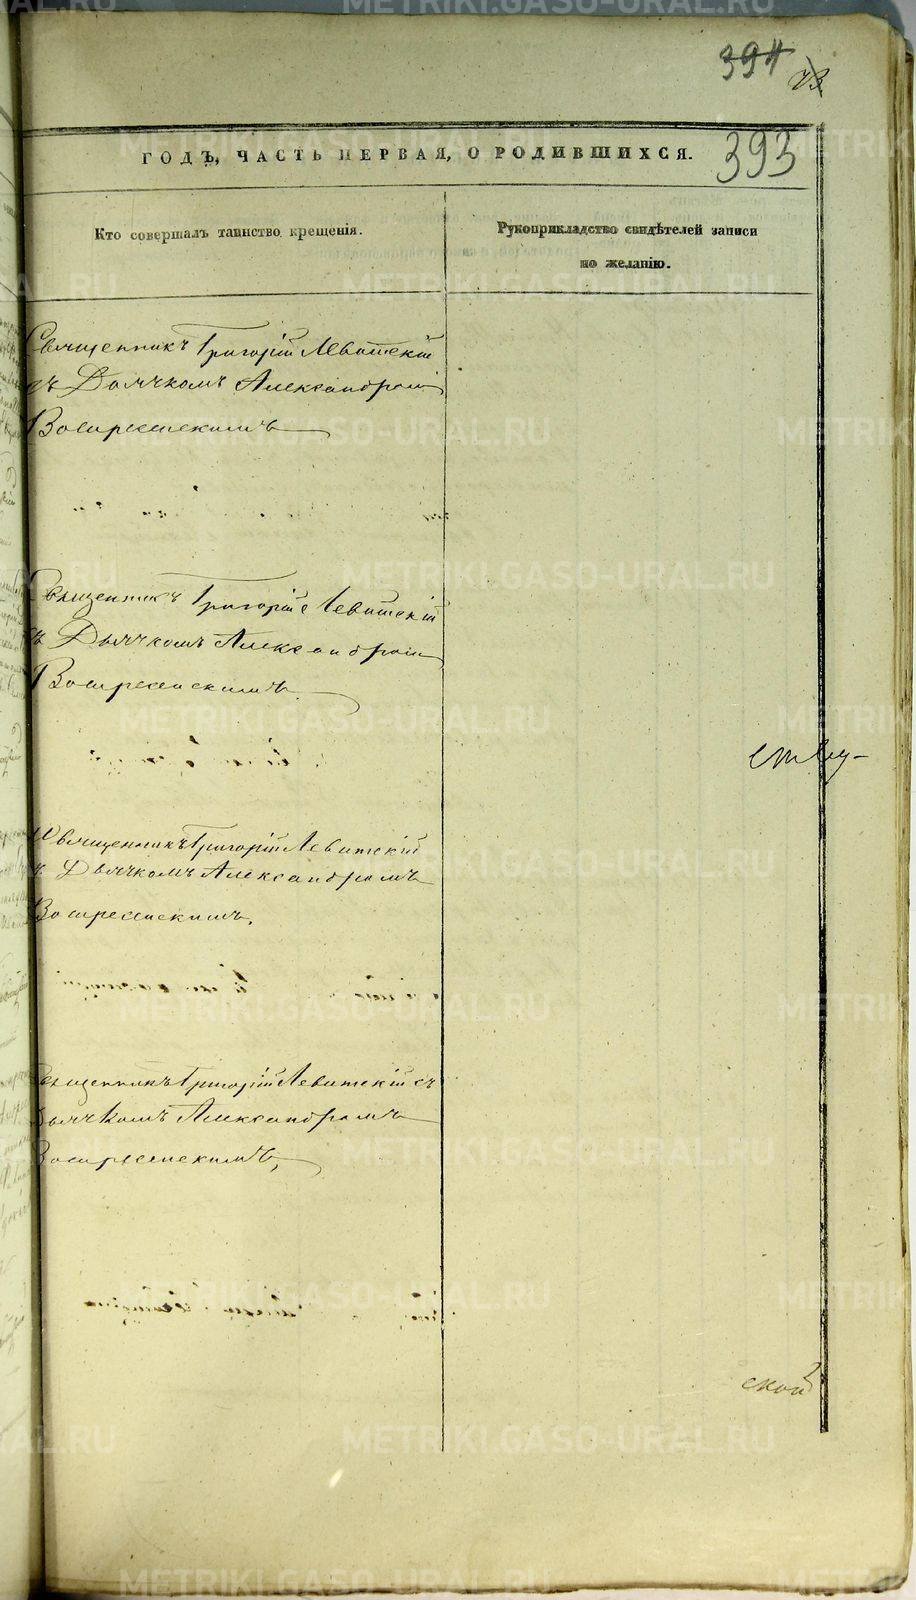 394
73
ГОДЪ, ЧАСТЬ ПЕРВАЯ, О РОДИВШИХСЯ.
393
Кто совершалъ таинство крещенія.
Рукоприкладство свидѣтелей записи
по желанію.
Священникъ Григорій Левитскій
съ Дьячкомъ Александромъ
Воскресенскимъ
Священникъ Григорій Левитскій
съ Дьячкомъ Александромъ
Воскресенскимъ
Священникъ Григорій Левитскій
съ Дьячкомъ Александромъ
Воскресенскимъ.
Священникъ Григорій Левитскій съ
Дьячкомъ Александромъ
Воскресенскимъ,
ской
METRIKI.GASO-URAL.RU